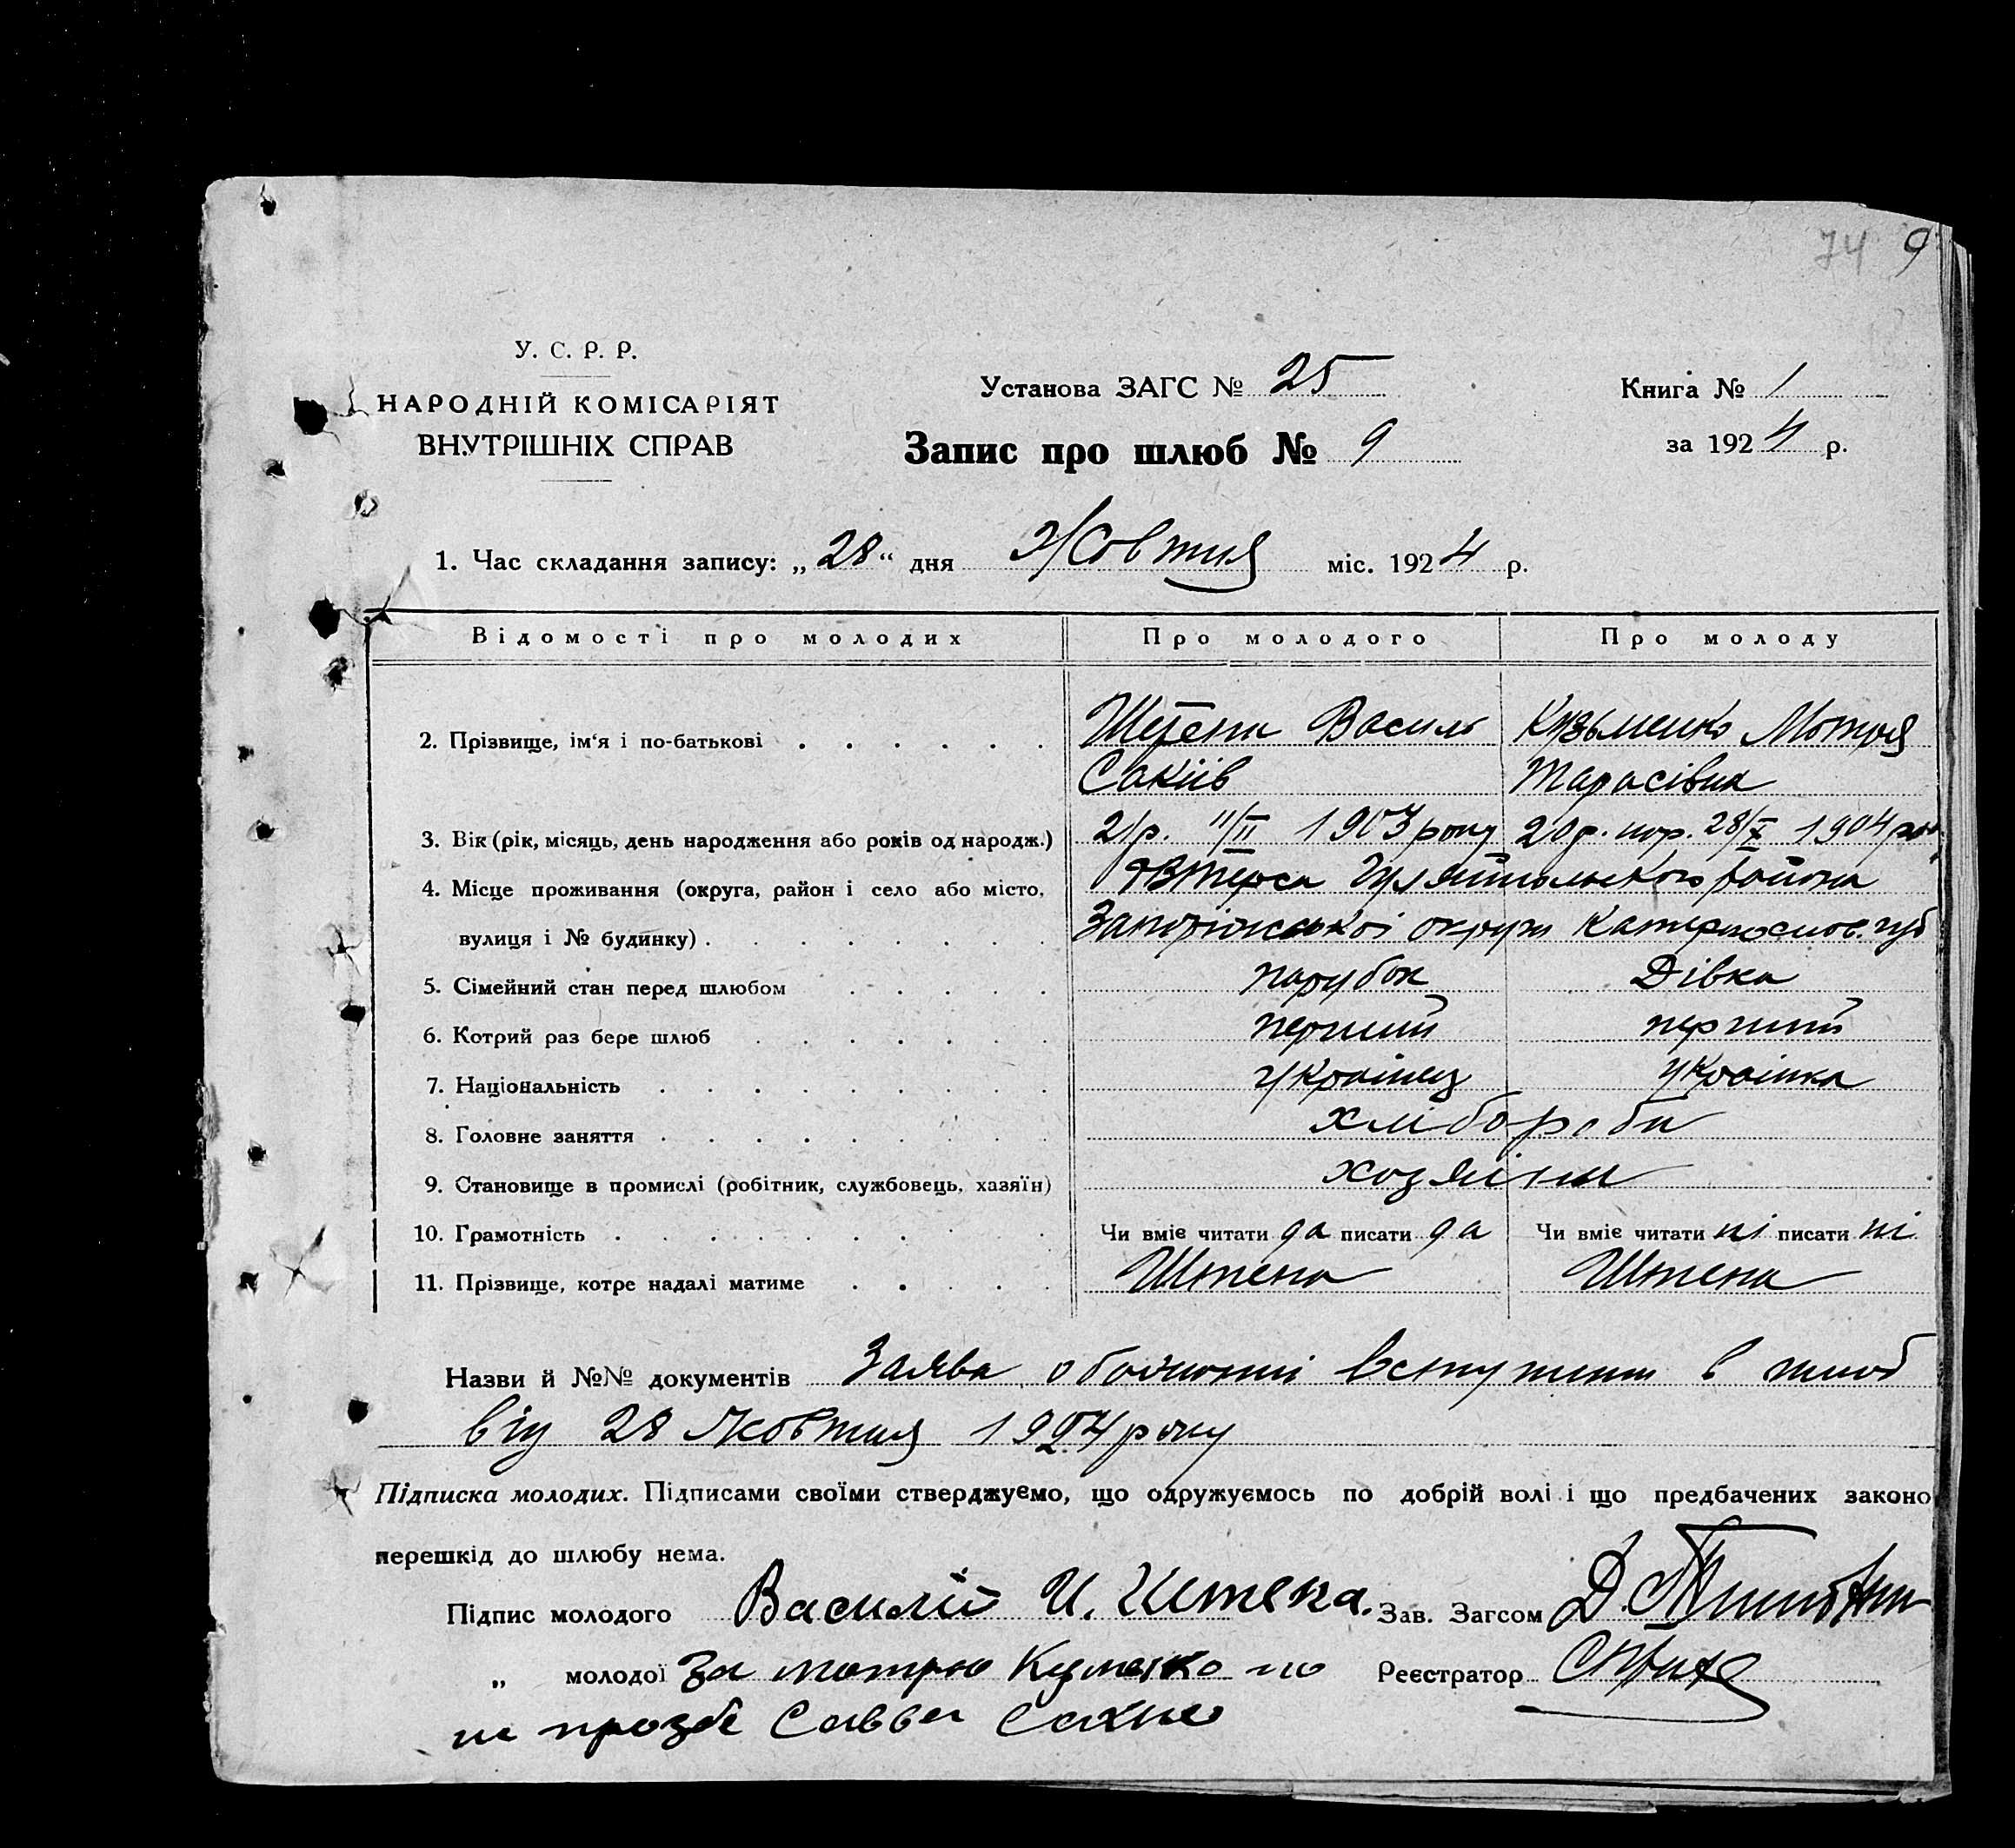 74 9
У. С. Р. Р.
НАРОДНІЙ КОМІСАРІЯТ
ВНУТРІШНІХ СПРАВ
Установа ЗАГС № 25
Книга № 1
Запис про шлюб № 9
за 1924 р.
1. Час складання запису: „28“ дня Жовтня міс. 1924 р.
Відомості про молодих Про молодого Про молоду
2. Прізвище, ім‘я і по-батькові Василь Кузьменко Мотря
Сакіів Тарасівна
3. Вік (рік, місяць, день народження або років од народж.) 21 р. 11/II 1903 року 20 р. 28/X 1904
4. Місце проживання (округа, район і село або місто, района
вулиця і № будинку) Запоріжської округи губ
5. Сімейний стан перед шлюбом парубок Дівка
6. Котрий раз бере шлюб перший перший
7. Національність українец українка
8. Головне заняття хлібороби
9. Становище в промислі (робітник, службовець, хазяїн) хозяіни
10. Грамотність Чи вміє читати да писати да Чи вміє читати ні писати ні
11. Прізвище, котре надалі матиме Штепа Штепа
Назви й №№ документів Заява вступити в шлюб
від 28 Жовтня 1924 року
Підписка молодих. Підписами своїми стверджуємо, що одружуємось по добрій волі і що предбачених законо
перешкід до шлюбу нема.
Підпис молодого Василій И. Штепа. Зав. Загсом Д.
„ молодої За мотрю по Реєстратор
прозбе Савва